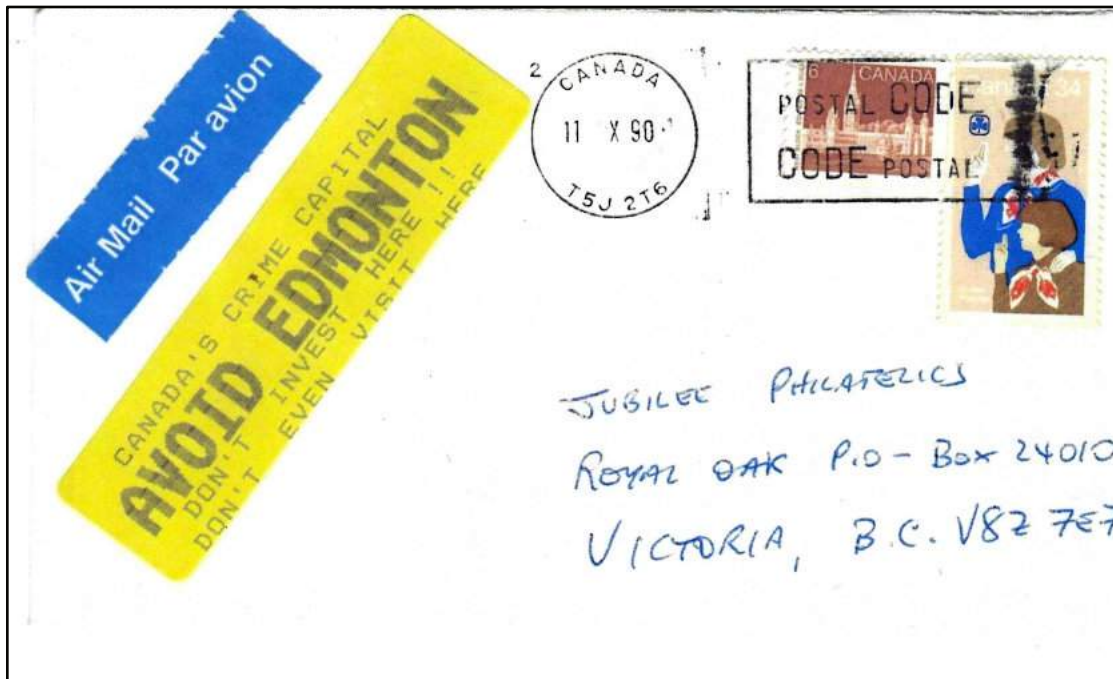 Air Mail Par avion
CANADA'S CRIME CAPITAL
AVOID EDMONTON
DON'T INVEST HERE !!
DON'T EVEN VISIT HERE
2
CANADA
11 X 90
T5J 2T6
POSTAL CODE
CODE POSTAL
6 CANADA
Canada 34
JUBILEE PHILATELICS
ROYAL OAK P.O - BOX 24010
VICTORIA, B.C. V8Z 7E7